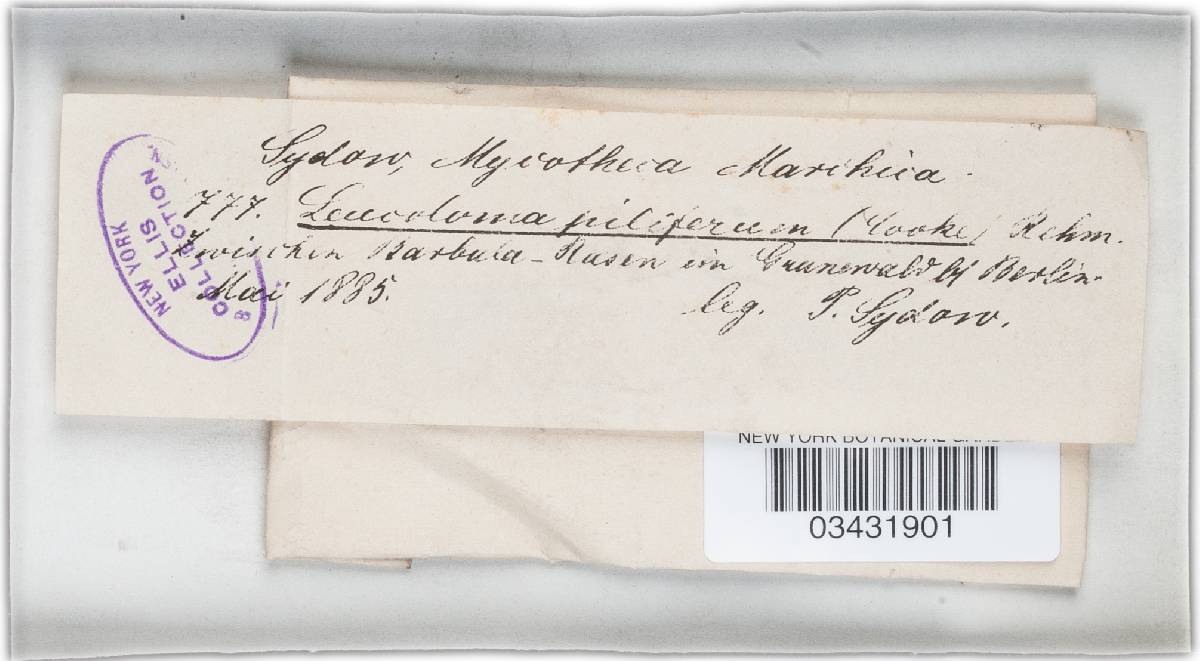 Sydow, Mycotheca Marchica.
777. Leucoloma piliferum (Cooke) Rehm.
Zwischen Barbula-Rasen im Grunewald bj Berlin.
Mai 1885.
leg. P. Sydow.
NEW YORK
ELLIS
COLLECTION
NEW YORK BOTANICAL
03431901